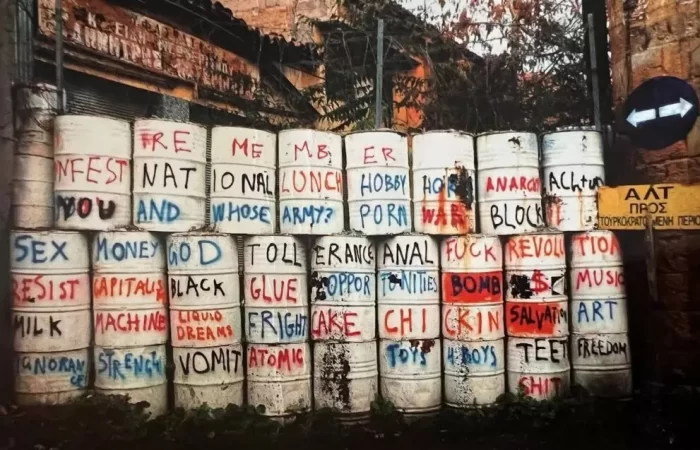 RE ME MB ER
NFEST NAT IONAL LUNCH HOBBY HOR ANARC Achtun
YOU AND WHOSE ARMY? PORN WAR BLOCK
SEX MONEY GOD TOLL ERANCE ANAL FUCK REVOLU TION
RESIST CAPITALIS BLACK GLUE OPPOR TUNITIES BOMB $ MUSIC
MILK MACHINE LIQUID DREAMS FRIGHT CAKE CHI CKIN SALVATION ART
IGNORANCE STRENGTH VOMIT ATOMIC TOYS 4 BOYS TEET SHIT FREEDOM
ΑΛΤ
ΠΡΟΣ
ΤΟΥΡΚΟΚΡΑΤΟ ΜΕΝΗ ΠΕΡΙΟ